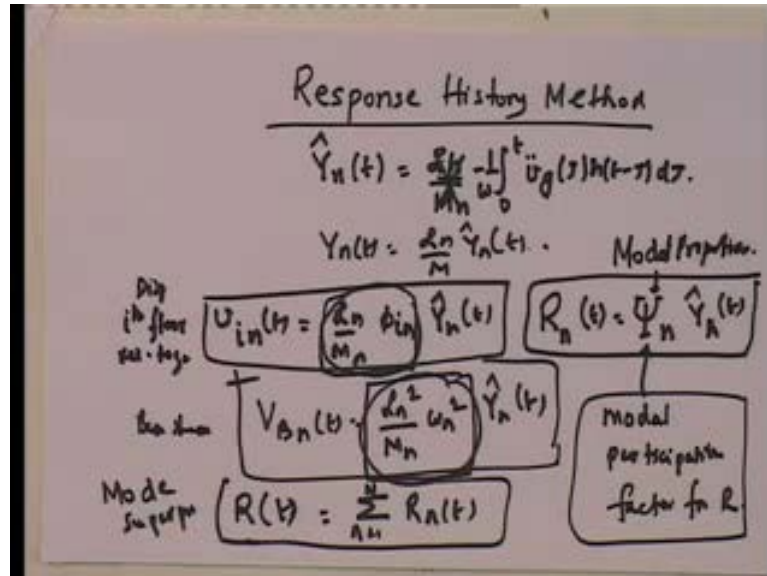 Response History Method
Ŷn(t) = -1/ω ∫₀ᵗ ü_g(τ)h(t-τ)dτ.
Yn(t) = ℒn/M Ŷn(t).
Modal Properties.
Disp
ith floor
rel. to g
υ_in(t) = ℒn/Mn ϕ_in Ŷn(t)
R_n(t) = Ψ_n Ŷ_n(t)
Base shear
V_Bn(t) = ℒn²/Mn ωn² Ŷn(t)
modal
participation
factor for R
Mode
superp
R(t) = Σ R_n(t)